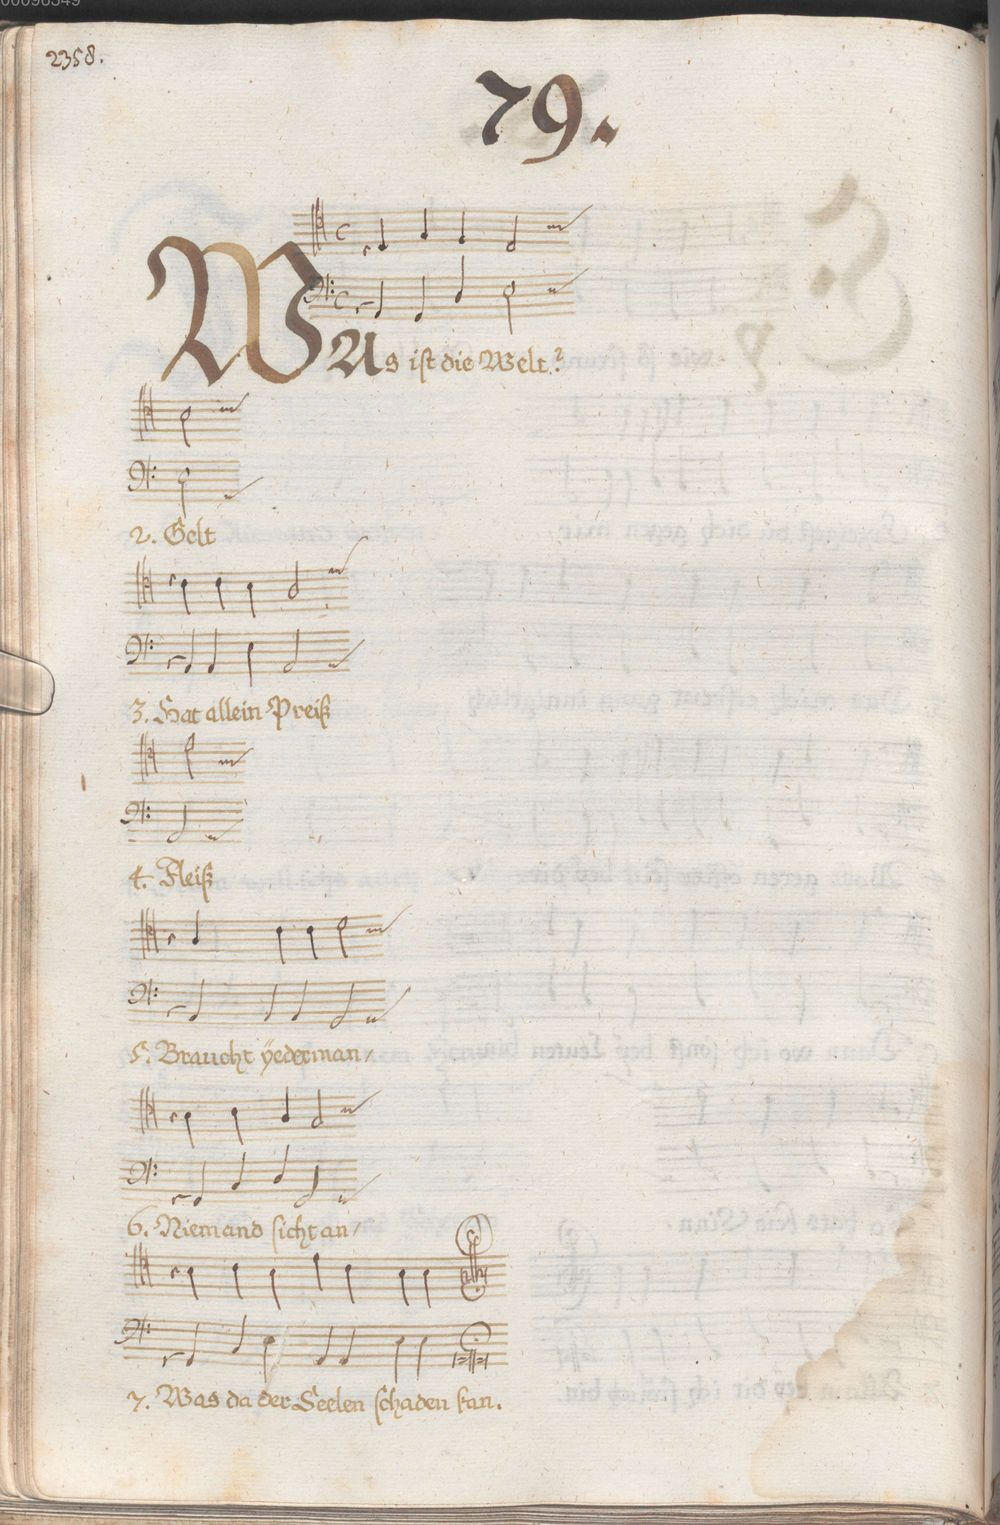 00098349
2358.
79.
WAs ist die Welt?
2. Gelt
3. Hat allein Preiß
4. Fleiß
5. Braucht ÿederman/
6. Niemand sicht an/
7. Was da der Seelen schaden kan.